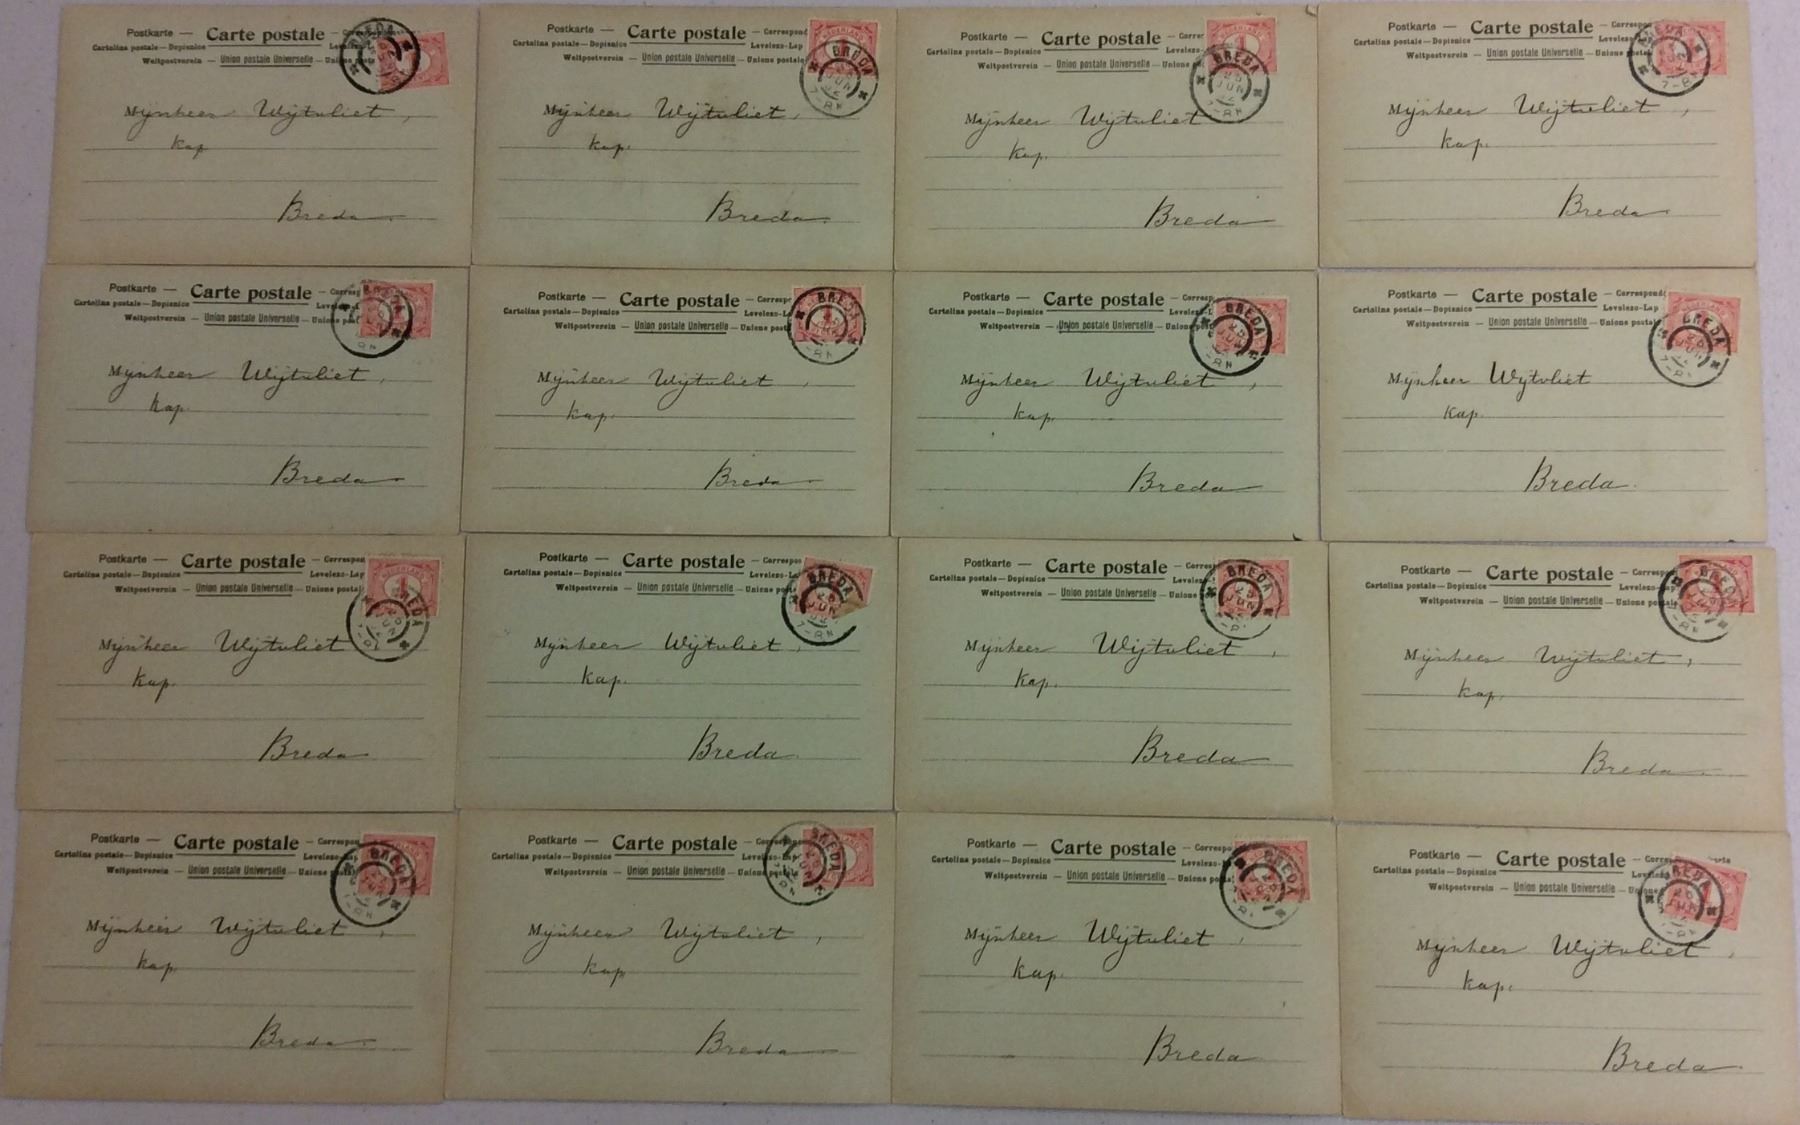 Postkarte — Carte postale — Correspon
Cartolina postale — Dopisnice Levelezo
Weltpostverein — Union postale Universelle — Unione posta
BREDA
Mijnheer Wijtvliet,
Kap
Breda
Postkarte — Carte postale — Correspond
Cartolina postale — Dopisnice Levelezo-Lap
Weltpostverein — Union postale Universelle — Unione postale
BREDA
JUN
7-8N
Mijnheer Wijtvliet,
Kap.
Breda.
Postkarte — Carte postale — Correr
Cartolina postale — Dopisnice Levelezo-
Weltpostverein — Union postale Universelle — Unione
BREDA
25
JUN
02
7-8N
Mijnheer Wijtvliet
Kap.
Breda
Postkarte — Carte postale — Correspon
Cartolina postale — Dopisnice Levelezo-L
Weltpostverein — Union postale Universelle — Unione
BREDA
7-8
Mijnheer Wijtvliet,
Kap.
Breda
Postkarte — Carte postale — Corresp
Cartolina postale — Dopisnice Levele
Weltpostverein — Union postale Universelle — Unione postal
BREDA
8N
Mijnheer Wijtvliet,
Kap.
Breda
Postkarte — Carte postale — Corresp
Cartolina postale — Dopisnice Levelezo-Lap
Weltpostverein — Union postale Universelle — Unione posta
BREDA
8N
Mijnheer Wijtvliet,
Kap.
Breda
Postkarte — Carte postale — Corresp
Cartolina postale — Dopisnice Levelezo-L
Weltpostverein — Union postale Universelle — Unione
BREDA
25
JUN
8N
Mijnheer Wijtvliet,
Kap.
Breda
Postkarte — Carte postale — Correspond
Cartolina postale — Dopisnice Levelezo-Lap
Weltpostverein — Union postale Universelle — Unione postal
BREDA
25
JUN
7-8
Mijnheer Wijtvliet
Kap.
Breda.
Postkarte — Carte postale — Correspon
Cartolina postale — Dopisnice Levelezo-Lap
Weltpostverein — Union postale Universelle — Unione postal
BREDA
JUN
Mijnheer Wijtvliet
Kap.
Breda
Postkarte — Carte postale — Corresp
Cartolina postale — Dopisnice Levelezo-L
Weltpostverein — Union postale Universelle — Unione
BREDA
25
JUN
02
7-8N
Mijnheer Wijtvliet,
Kap.
Breda
Postkarte — Carte postale — Corresp
Cartolina postale — Dopisnice Levelezo
Weltpostverein — Union postale Universelle — Unione
BREDA
25
JUN
7-8N
Mijnheer Wijtvliet,
Kap.
Breda
Postkarte — Carte postale — Correspon
Cartolina postale — Dopisnice Levelezo-Lap
Weltpostverein — Union postale Universelle — Unione posta
BREDA
7-8N
Mijnheer Wijtvliet,
Kap.
Breda
Postkarte — Carte postale — Correspon
Cartolina postale — Dopisnice Levelezo-Lap
Weltpostverein — Union postale Universelle — Unione
BREDA
7-8N
Mijnheer Wijtvliet,
Kap.
Breda
Postkarte — Carte postale — Corre
Cartolina postale — Dopisnice Levelezo-Lap
Weltpostverein — Union postale Universelle — Unione
BREDA
JUN
Mijnheer Wijtvliet,
Kap
Breda
Postkarte — Carte postale — Corresp
Cartolina postale — Dopisnice Levelezo-L
Weltpostverein — Union postale Universelle — Unione posta
BREDA
Mijnheer Wijtvliet,
Kap.
Breda
Postkarte — Carte postale — Corre
Cartolina postale — Dopisnice Levelezo-L
Weltpostverein — Union postale Universelle — Unione
BREDA
25
JUN
Mijnheer Wijtvliet,
Kap.
Breda.